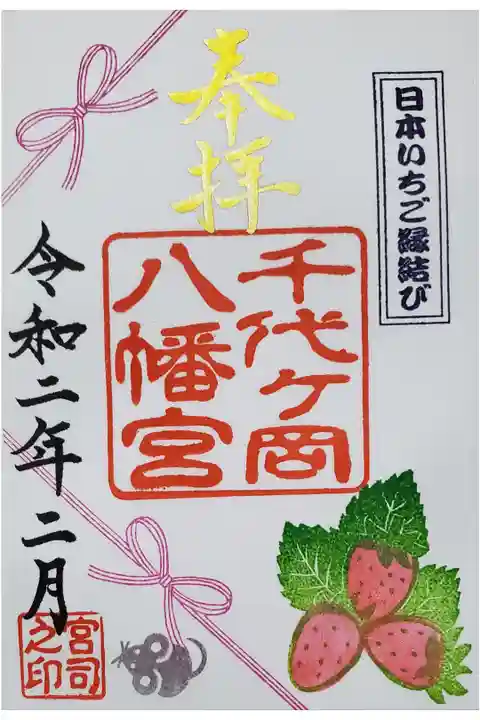 奉拝
日本いちご縁結び
千代ヶ岡
八幡宮
令和二年二月
宮司
之印